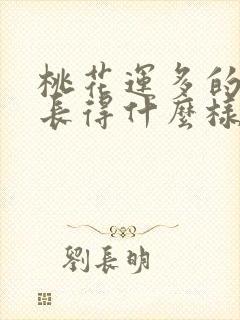 桃花運多的
長得什麼樣
劉長明